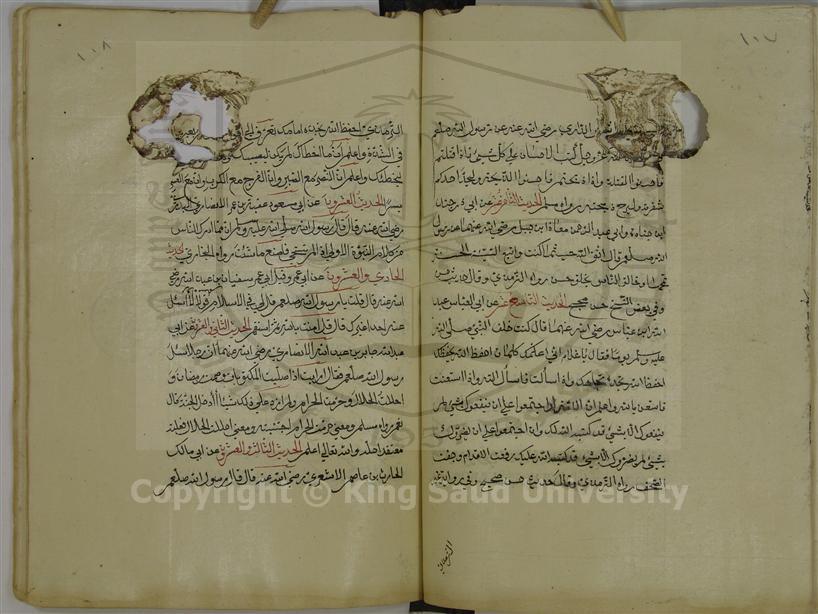 ١٠٧
الثاري رضي الله عنه عن رسول الله صلعم
كتب الاحسان على كل شيئ فاذا قتلتم
فاحسنوا القتلة واذا ذبحتم فاحسنوا الذبحة وليحد احدكم
شفرته وليرح ذبيحته رواه مسلم الحديث الثامن عشر عن ابي ذر جندب
ابن جنادة وابي عبد الرحمن معاذ ابن جبل رضي الله عنهما عن رسول
الله صلعم قال اتق الله حيثما كنت واتبع السيئة الحسنة
تمحها وخالق الناس بخلق حسن رواه الترمذي وقال حديث حسن
وفي بعض النسخ حسن صحيح الحديث التاسع عشر عن ابي العباس عبد
الله ابن عباس رضي الله عنهما قال كنت خلف النبي صلى الله
عليه وسلم يوما فقال يا غلام اني اعلمك كلمات احفظ الله يحفظك
احفظ الله تجده تجاهك واذا سالت فاسأل الله واذا استعنت
فاستعن بالله واعلم ان الامة لو اجتمعوا على ان ينفعوك بشيئ لم
ينفعوك الا بشيئ قد كتبه الله لك وان اجتمعوا على ان يضروك
بشيئ لم يضروك الا بشيئ قد كتبه الله عليك رفعت الاقلام وجفت
الصحف رواه الترمذي وقال حديث حسن صحيح وفي رواية غير
الترمذي
١٠٨
الترمذي احفظ الله تجده امامك تعرف الى
في الشدة واعلم ان ما اخطاك لم يكن ليصيبك
ليخطئك واعلم ان النصر مع الصبر وان الفرج مع الكرب وان مع العسر
يسرا الحديث العشرون عن ابي مسعود عقبة بن عمر الانصاري البدري
رضي الله عنه قال قال رسول الله صلى الله عليه وسلم ان مما ادرك الناس
من كلام النبوة الاولى اذا لم تستحي فاصنع ما شئت رواه البخاري الحديث
الحادي والعشرون عن ابي عمرو وقيل ابي عمر سفيان بن عبد الله رضي
الله عنه قال قلت يا رسول الله صلعم قل لي في الاسلام قولا لا أسئل
عنه احدا غيرك قال قل امنت بالله ثم استقم الحديث الثاني والعشرون عن ابي
عبد الله جابر بن عبد الله الانصاري رضي الله عنهما أن رجلا سئل
رسول الله صلعم فقال ارايت اذا صليت المكتوبات وصمت رمضان و
احللت الحلال وحرمت الحرام ولم ازد على ذلك شيئا أأدخل الجنة قال
نعم رواه مسلم ومعنى حرمت الحرام اجتنبته ومعنى احللت الحلال فعلته
معتقدا حله والله تعالى اعلم الحديث الثالث والعشرون عن ابي مالك
الحارث بن عاصم الاشعري رضي الله عنه قال قال رسول الله صلعم
Copyright © King Saud University
1957